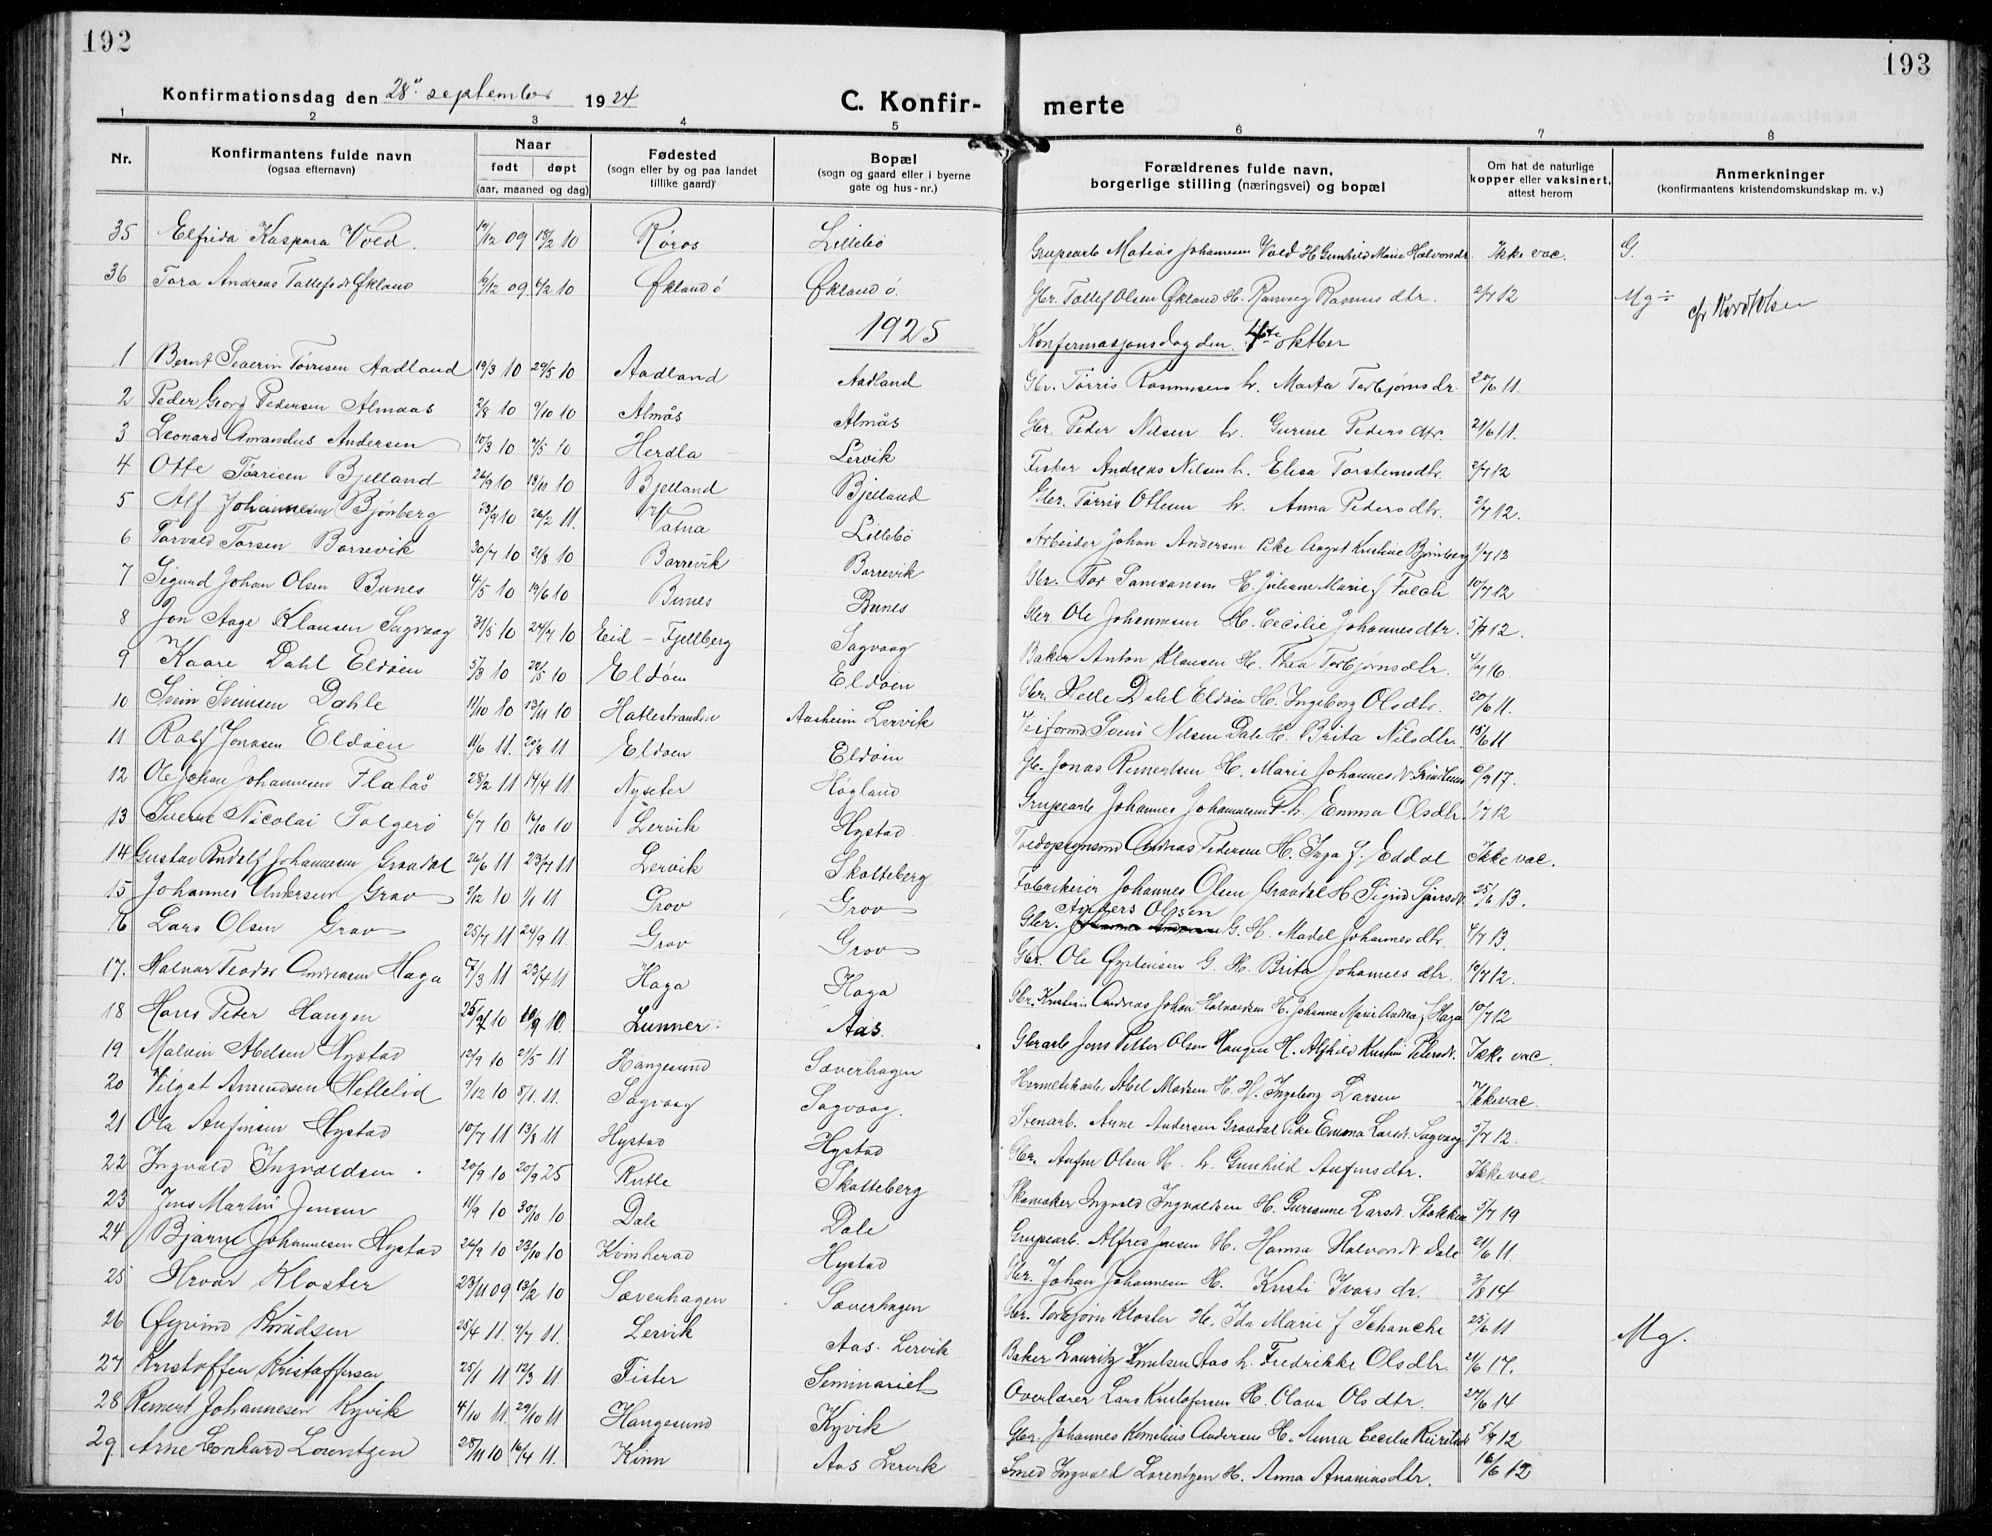 192
193
Konfirmationsdag den 28de september 1924
C. Konfir- merte
1 2 3 4 5 6 7 8
Nr.
Konfirmantens fulde navn
(ogsaa efternavn)
Naar
født døpt
(aar, maaned og dag)
Fødested
(sogn eller by og paa landet
tillike gaard)
Bopæl
(sogn og gaard eller i byerne
gate og hus-nr.)
Forældrenes fulde navn,
borgerlige stilling (næringsvei) og bopæl
Om hat de naturlige
kopper eller vaksinert,
attest herom
Anmerkninger
(konfirmantens kristendomskundskap m. v.)
35 Elfrida Kaspara Vold. 19/12 09 13/2 10 Røros Lillebø Grupearb Matias Johannesen Vold H Gunhild Marie Halvorsdr Ikke vac. G.
36 Tora Andreas Tollefsdr Økland 6/12 09 4/2 10 Økland ö Økland ö. Gbr. Tollef Olsen Økland H. Rasmus dtr. 2/7 12 Mg ÷
1925 Konfirmasjonsdag den 4de oktber
1 Bernt Severin Tørrisen Aadland 19/3 10 29/5 10 Aadland Aadland Gbr. Tørris Rasmussen h. Marta Torbjørnsdr. 20/6 11.
2 Peder Georg Pedersen Almaas 2/8 10 9/10 10 Almås Almås Gbr. Peder Nilsen h. Gurine Peders dtr. 21/6 11.
3 Leonard Amandus Andersen 10/3 10 7/5 10 Herdla Lervik Fisker Andreas Nilsen h. Elisa Torstensdtr. 2/7 12
4 Otte Tørrisen Bjelland 26/9 10 19/10 10 Bjelland Bjelland Gbr. Tørris Ottesen h. Anna Pedersdtr. 2/7 12.
5 Alf Johannesen Bjønberg 23/9 10 26/2 11. Vatna Lillebø Arbeider Johan Andersen Pike Kristine Bjønberg 1/7 13
6 Torvald Torsen Borrevik 30/7 10 21/8 10 Borrevik Borrevik Gbr. Tor Samsonsen H. Juliane Marie f Falch 10/7 12
7 Sigurd Johan Olsen Bunes 4/5 10 19/6 10 Bunes Bunes Gbr. Ole Johannesen H. Cecilie Johannesdtr. 5/7 12.
8 Jon Aage Klausen Sagvaag 31/5 10 24/7 10 Eid - Fjellberg Sagvaag Baker Anton Klausen H. Thea Torbjørnsdtr. 4/7 16.
9 Kaare Dahl Eldøen 5/3 10 22/5 10 Eldøen Eldøen Gbr. Helle Dahl Eldøen H. Ingeborg Olsdtr. 20/6 11.
10 Svein Sveinsen Dahle 11/10 10 13/11 10 Hatlestranden Aasheim Lervik Veiformd Svein Nilsen Dale H. Brita Nilsdtr. 15/6 11
11 Rolf Jonasen Eldøen 11/6 11. 20/8 11 Eldøen Eldøen Gbr. Jonas Remertsen H. Marie Johannesdr 6/9 17.
12 Ole Johan Johannesen Flatås 28/2 11 17/4 11 Nyseter Høgland Grupearb Johannes Johannesen h. Emma Olsdtr. 1/7 12
13 Sverre Nicolai Folgerø 6/7 10 16/10 10 Lervik Hystad Andreas Pedersen H. Inga J. Eddal Ikke vac.
14 Gustav Rudolf Johannesen Graadal 26/6 11 23/7 11 Lervik Skotteberg Johannes Olsen Graadal H Sigrid Sjursdt 25/6 13.
15 Johannes Andersen Grov 3/12 10 1/1 11 Grov Grov Gbr. Anders Olssen G. H. Madel Johannesdtr. 4/7 13.
16 Lars Olsen Grov 25/7 11 24/9 11. Grov Grov Gbr. Ole G. H. Brita Johannes dtr. 10/7 12.
17. Halvar Teodor Andreasen Haga 7/3 11 23/4 11 Haga Haga Gbr. Kristian Andreas Johan Halvardsen H. Johanne Marie Haga 10/7 12
18 Hans Peter Haugen 25/7 10 10/9 10. Lunner Aas. Gbrarb Jens Petter Olsen Haugen H. Alfhild Kristine Pedersdr. Ikke vac.
19 Malvin Abelsen Hystad 12/9 10 21/5 11 Haugesund Sæverhagen Hermetikarb Abel Madsen H. H. Ingeborg Larsen Ikke vac.
20 Vilgot Amundsen Hettelid 9/12 10 8/1. 11. Sagvaag Sagvaag. Stenarb. Arne Andersen Graadal Pike Emma Larsdt. Sagvaag 5/7 12.
21 Ola Anfinsen Hystad 10/7 11 13/8 11 Hystad Hystad Gbr. Anfin Olsen H. h. Gunhild Anfinsdtr. Ikke vac.
22 Ingvald Ingvaldsen. 20/9 10 20/9 25 Rutle Skotteberg Skomaker Ingvald Ingvaldsen H. Larsdt. 5/7 19
23 Jens Martin Jensen 11/9 10 30/10 10 Dale Dale Grupearb. Alfred Jensen H. Hanna Halvorsdt Dale 21/6 11.
24 Bjarne Johannesen Hystad 26/9 10 23/10 10 Kvinherad Hystad Gbr. Johan Johannesen H. Kristi Ivars dr. 3/8 14
25 Hroar Kloster 23/11 09 13/2 10 Sæverhagen Sæverhagen Gbr. Torbjørn Kloster H. Ida Marie f Schanche 23/6 11
26 Øyvind Knudsen 25/4 11. 9/7 11. Lervik Aas. Lervik Baker Lauritz Knutsen Aas h. Fredrikke Olsdtr. 21/6 17. Mg.
27 Kristoffer Kristoffersen 25/1 11 12/3 11 Fister Seminariet Overlærer Lars Kristofersen H. Olava Olsdtr. 27/6 14
28 Remert Johannesen Kyvik 4/10 11. 29/10 11 Haugesund Kyvik Gbr. Johannes Kornelius Andersen H. Anna Cecilie 5/7 12
29 Arne Leonhard Lorentzen 28/11 10 16/4 11. Kinn Aas Lervik Smed Ingvald Lorentzen H. Anna Ananiasdtr. 16/6 12